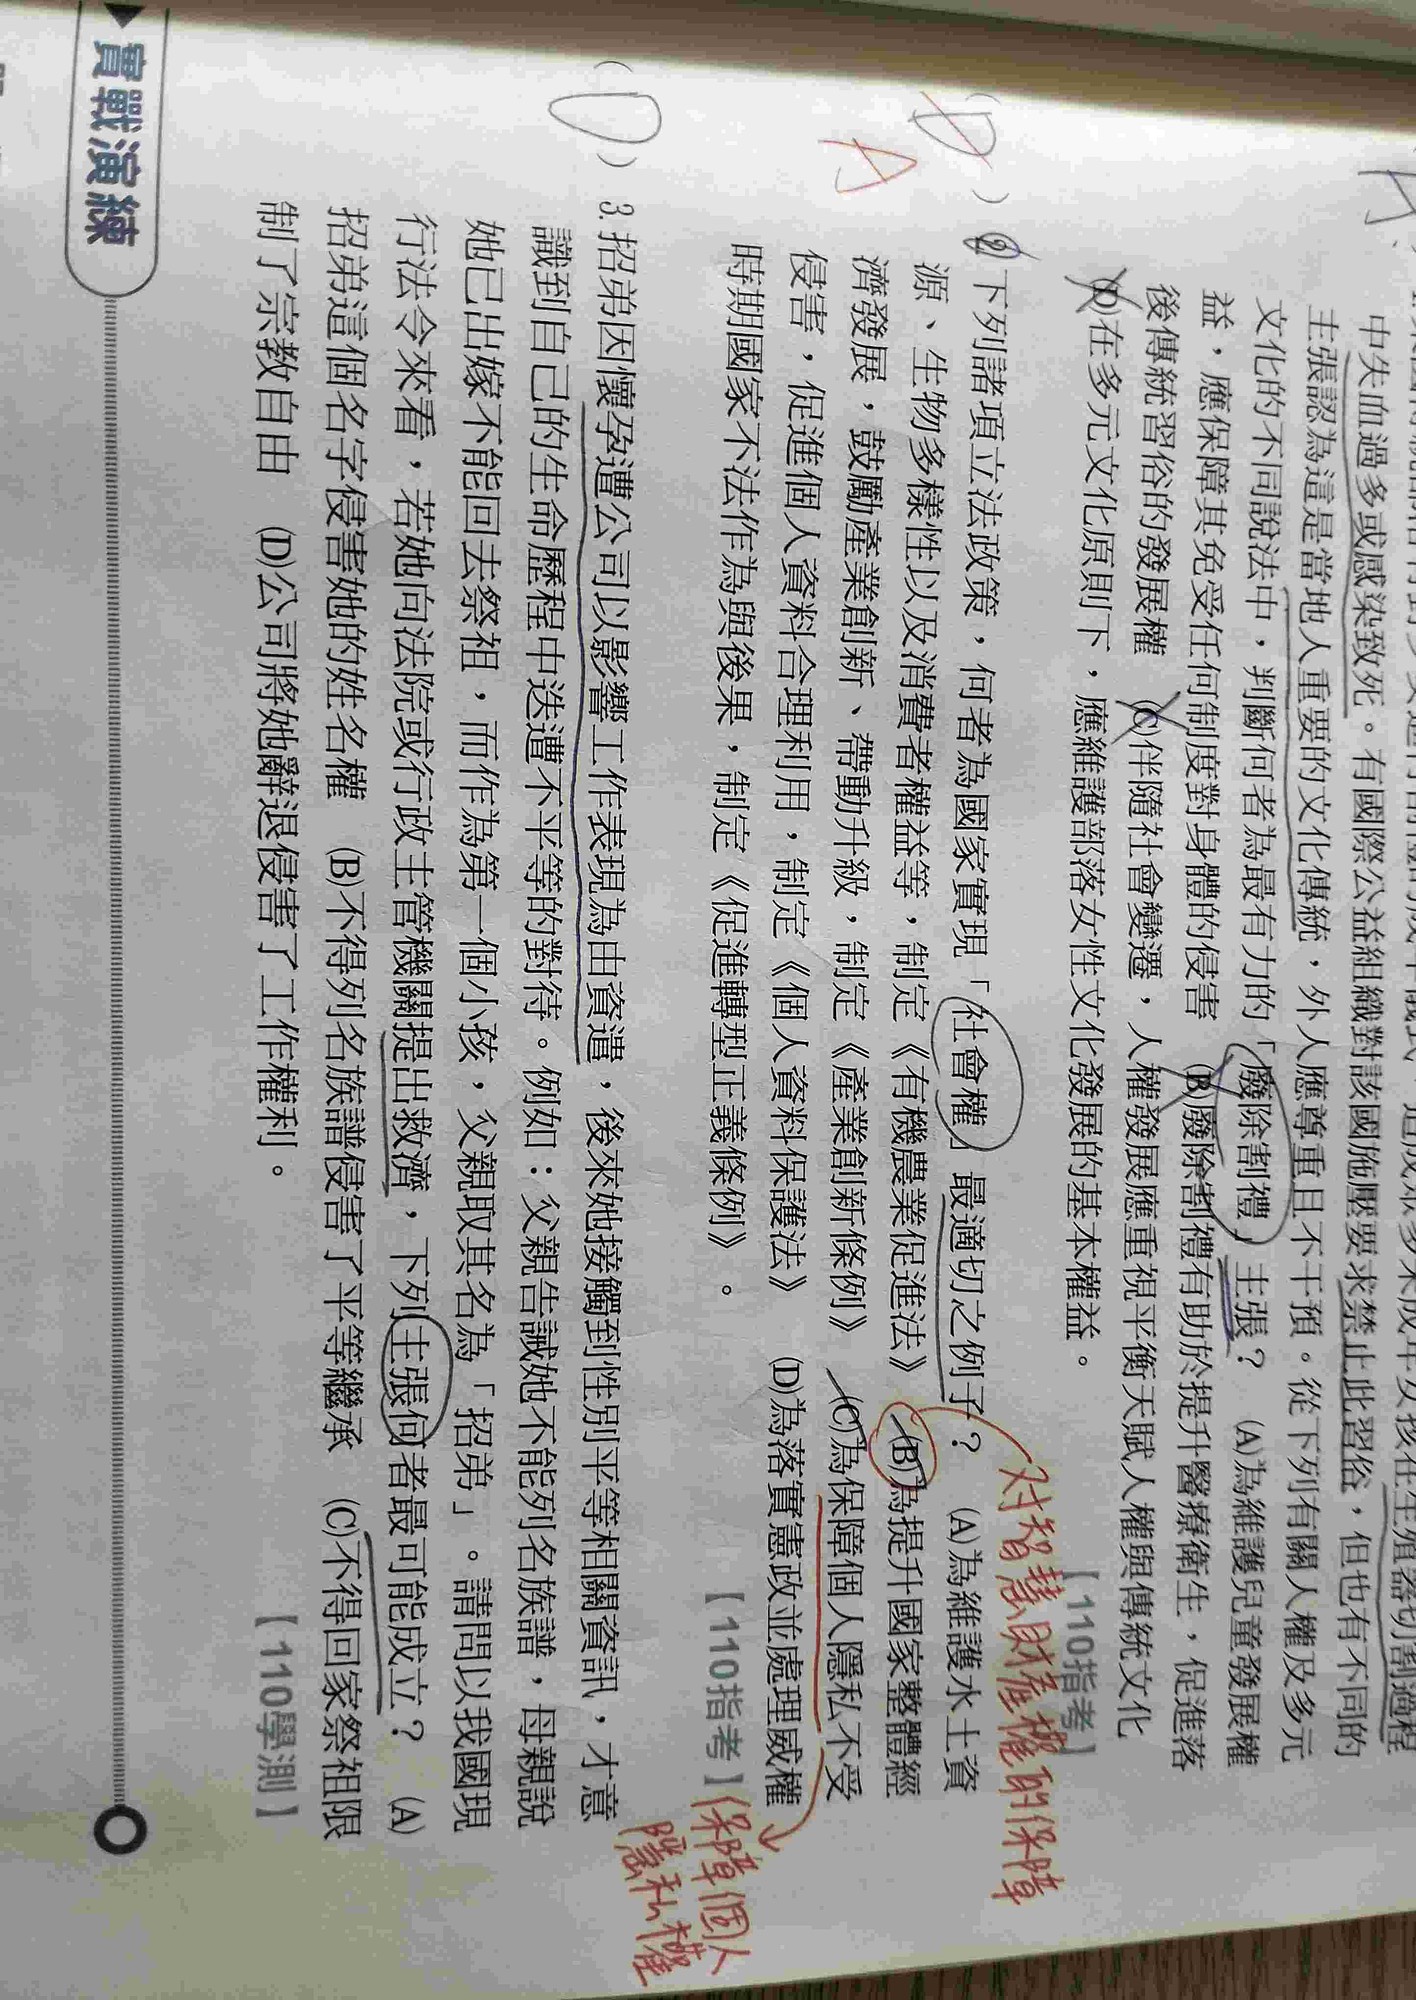 中失血過多或感染致死。有國際公益組織對該國施壓要求禁止此習俗，但也有不同的
主張認為這是當地人重要的文化傳統，外人應尊重且不干預。從下列有關人權及多元
文化的不同說法中，判斷何者為最有力的「廢除割禮」主張？　(A)為維護兒童發展權
益，應保障其免受任何制度對身體的侵害　(B)廢除割禮有助於提升醫療衛生，促進落
後傳統習俗的發展權　(C)伴隨社會變遷，人權發展應重視平衡天賦人權與傳統文化
(D)在多元文化原則下，應維護部落女性文化發展的基本權益。
【110指考】
对智慧財產權的保障
(D) 2.下列諸項立法政策，何者為國家實現「社會權」最適切之例子？　(A)為維護水土資
A
源、生物多樣性以及消費者權益等，制定《有機農業促進法》　(B)為提升國家整體經
濟發展，鼓勵產業創新、帶動升級，制定《產業創新條例》　(C)為保障個人隱私不受
侵害，促進個人資料合理利用，制定《個人資料保護法》　(D)為落實憲政並處理威權
時期國家不法作為與後果，制定《促進轉型正義條例》。
【110指考】
保障個人
隱私權
(D) 3.招弟因懷孕遭公司以影響工作表現為由資遣，後來她接觸到性別平等相關資訊，才意
識到自己的生命歷程中迭遭不平等的對待。例如：父親告誡她不能列名族譜，母親說
她已出嫁不能回去祭祖，而作為第一個小孩，父親取其名為「招弟」。請問以我國現
行法令來看，若她向法院或行政主管機關提出救濟，下列主張何者最可能成立？　(A)
招弟這個名字侵害她的姓名權　(B)不得列名族譜侵害了平等繼承　(C)不得回家祭祖限
制了宗教自由　(D)公司將她辭退侵害了工作權利。
【110學測】
▶實戰演練